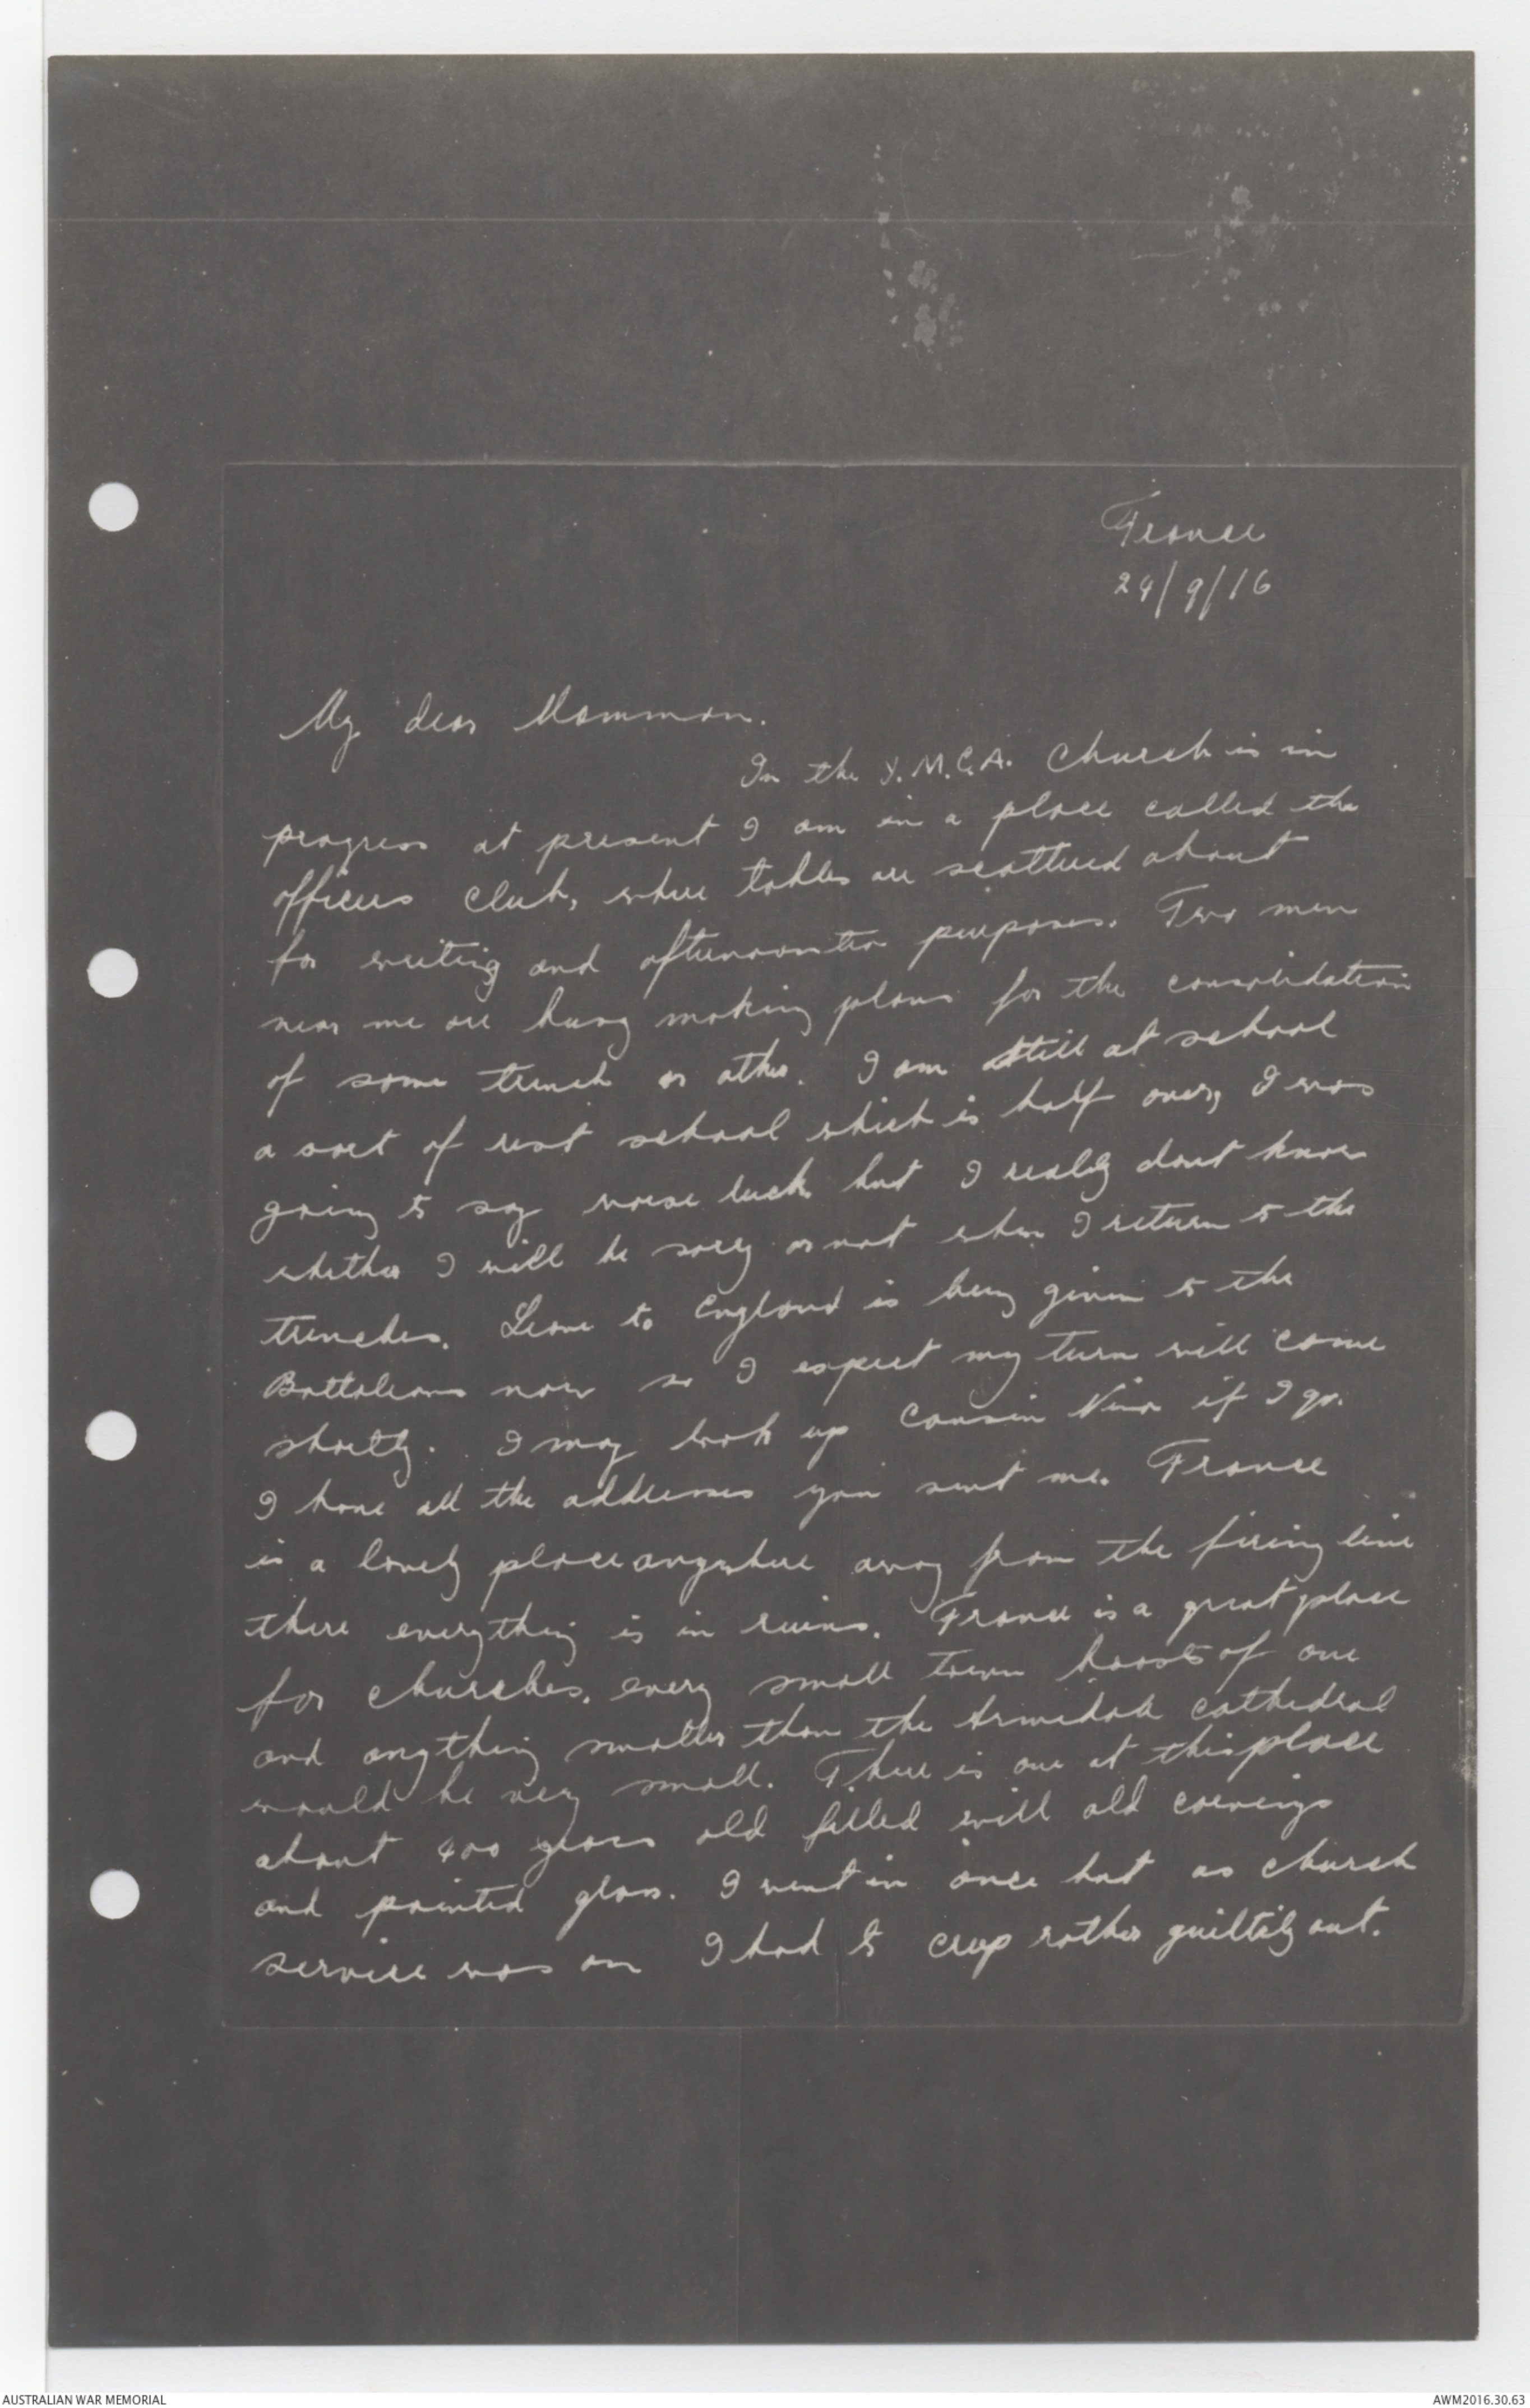 France
24/9/16
My dear Mamman.
In the Y.M.C.A. Church is in
progress at present I am in a place called the
officers club, where tables are scattered about
for writing and afternoontea purposes. Two men
near me are busy making plans for the consolidation
of some trench or other. I am still at school
a sort of rest school which is half over, I was
going to say worse luck but I really dont know
whether I will be sorry or not when I return to the
trenches. Leave to England is being given to the
Battalions now so I expect my turn will come
shortly. I may look up Cousin Nina if I go.
I have all the addresses you sent me. France
is a lovely place anywhere away from the firing line
there everything is in ruins. France is a great place
for churches. every small town boasts of one
and anything smaller than the Armidale cathedral
would be very small. There is one at this place
about 400 years old filled will old carvings
and painted glass. I went in once but as church
service was on I had to creep rather guiltily out.
AUSTRALIAN WAR MEMORIAL
AWM2016.30.63